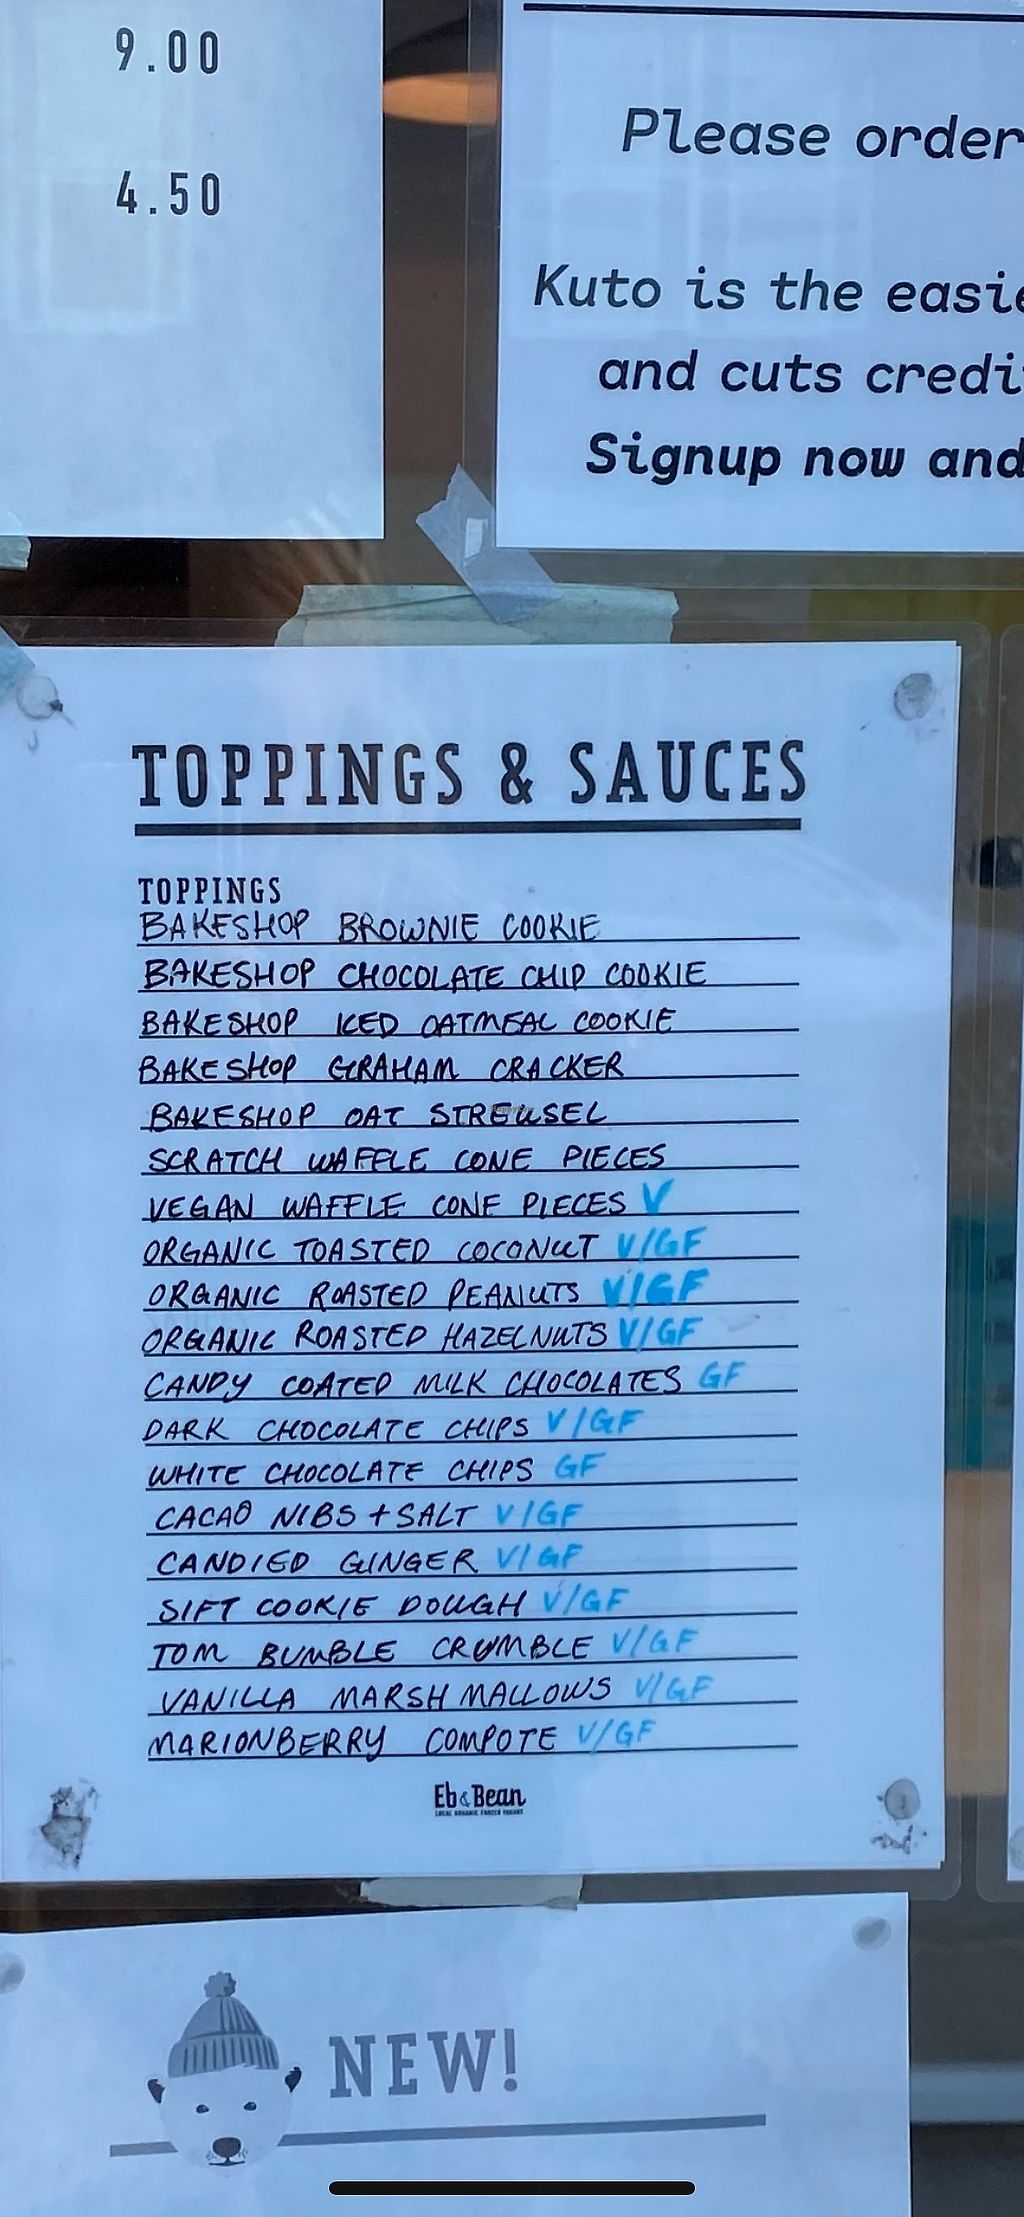 9.00
4.50
Please order
Kuto is the easie
and cuts credi
Signup now and
TOPPINGS & SAUCES
TOPPINGS
BAKESHOP BROWNIE COOKIE
BAKESHOP CHOCOLATE CHIP COOKIE
BAKESHOP ICED OATMEAL COOKIE
BAKESHOP GRAHAM CRACKER
BAKESHOP OAT STREUSEL
SCRATCH WAFFLE CONE PIECES
VEGAN WAFFLE CONE PIECES V
ORGANIC TOASTED COCONUT V/GF
ORGANIC ROASTED PEANUTS V/GF
ORGANIC ROASTED HAZELNUTS V/GF
CANDY COATED MILK CHOCOLATES GF
DARK CHOCOLATE CHIPS V/GF
WHITE CHOCOLATE CHIPS GF
CACAO NIBS + SALT V/GF
CANDIED GINGER V/GF
SIFT COOKIE DOUGH V/GF
TOM BUMBLE CRUMBLE V/GF
VANILLA MARSHMALLOWS V/GF
MARIONBERRY COMPOTE V/GF
Eb & Bean
LOCAL ORGANIC FROZEN YOGURT
NEW!